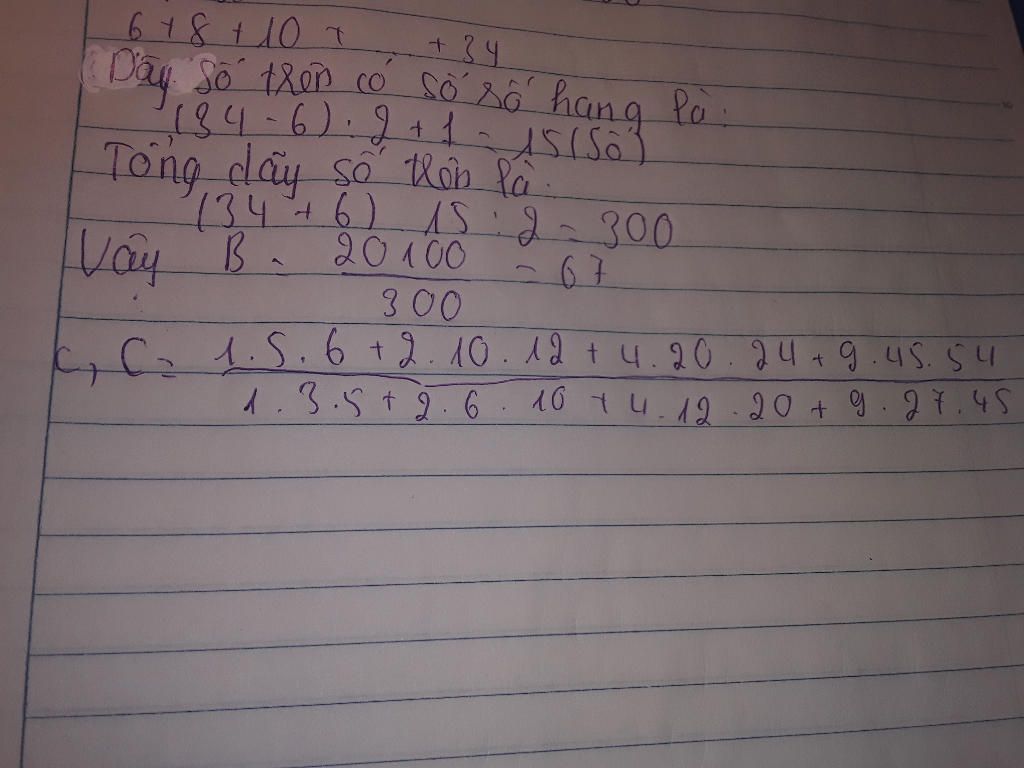 6 + 8 + 10 + ... + 34
Dãy số trên có số số hạng là:
(34 - 6) : 2 + 1 = 15 (Số)
Tổng dãy số trên là:
(34 + 6) 15 : 2 = 300
Vây B = 20100 / 300 = 67
c, C = 1.5.6 + 2.10.12 + 4.20.24 + 9.45.54
1.3.5 + 2.6.10 + 4.12.20 + 9.27.45